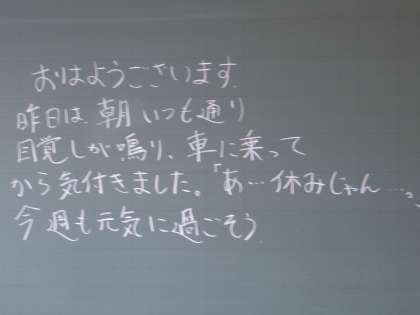 おはようございます.
昨日は 朝 いつも通り
目覚しが鳴り、車に乗って
から気付きました。「あ…休みじゃん…。」
今週も元気に過ごそう